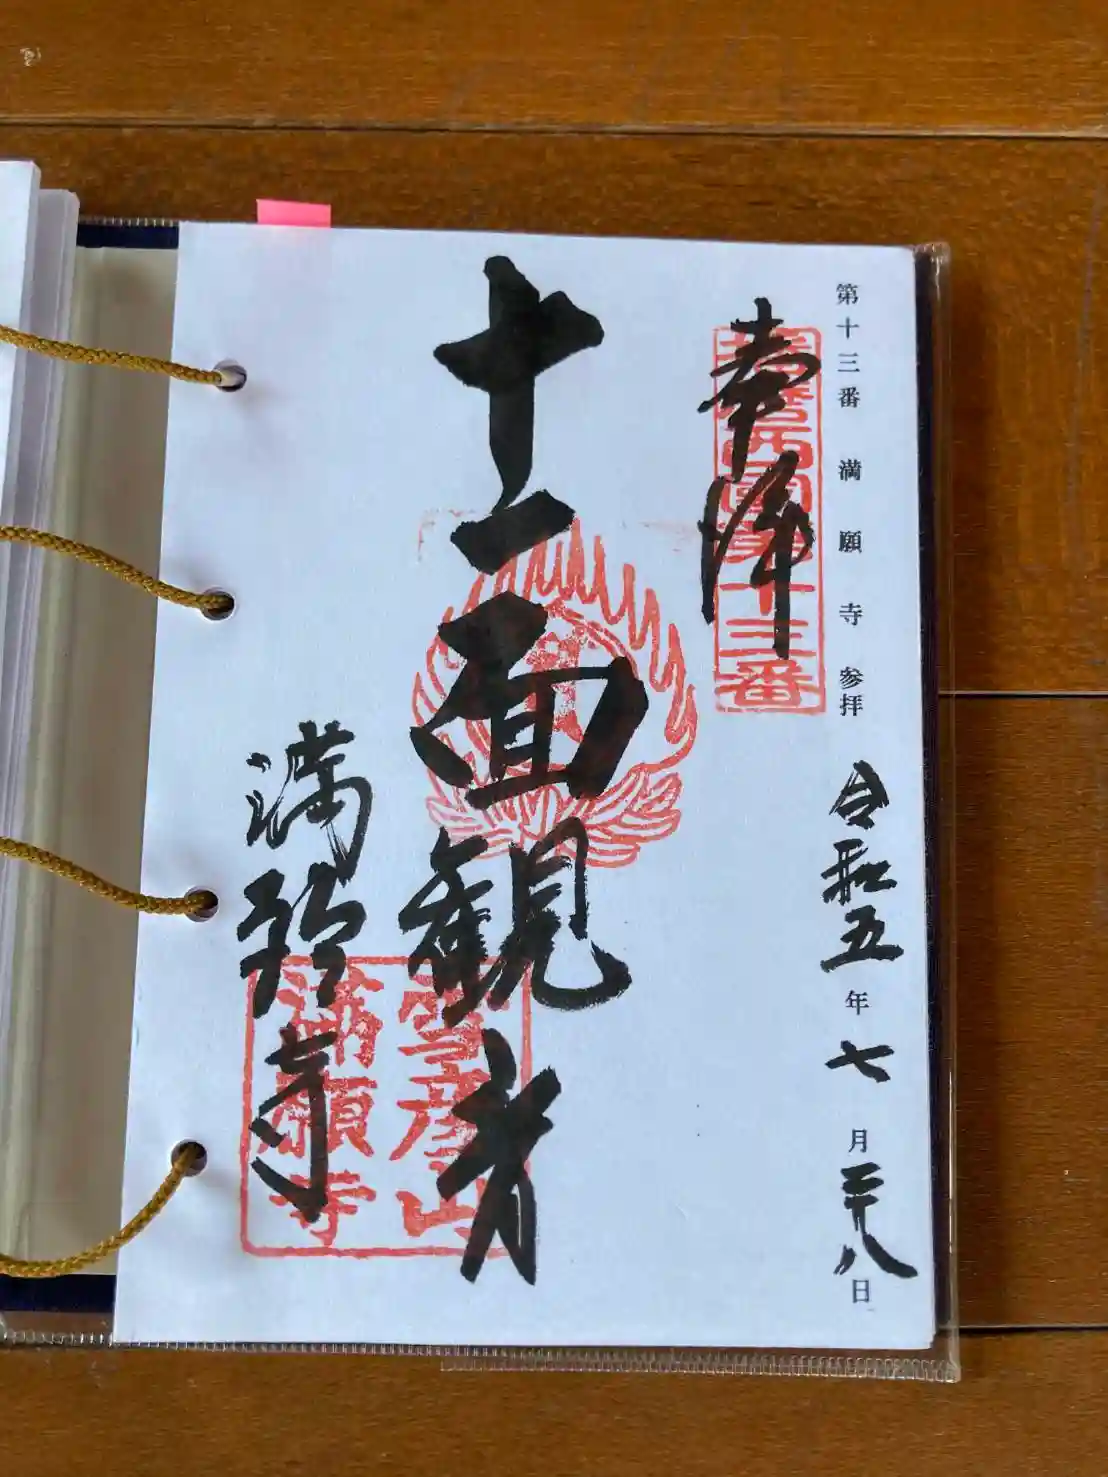 第十三番 満願寺 参拝 令和五年七月二十八日
奉拝
播磨西國第十三番
十一面観音
満願寺
雪彦山
満願寺